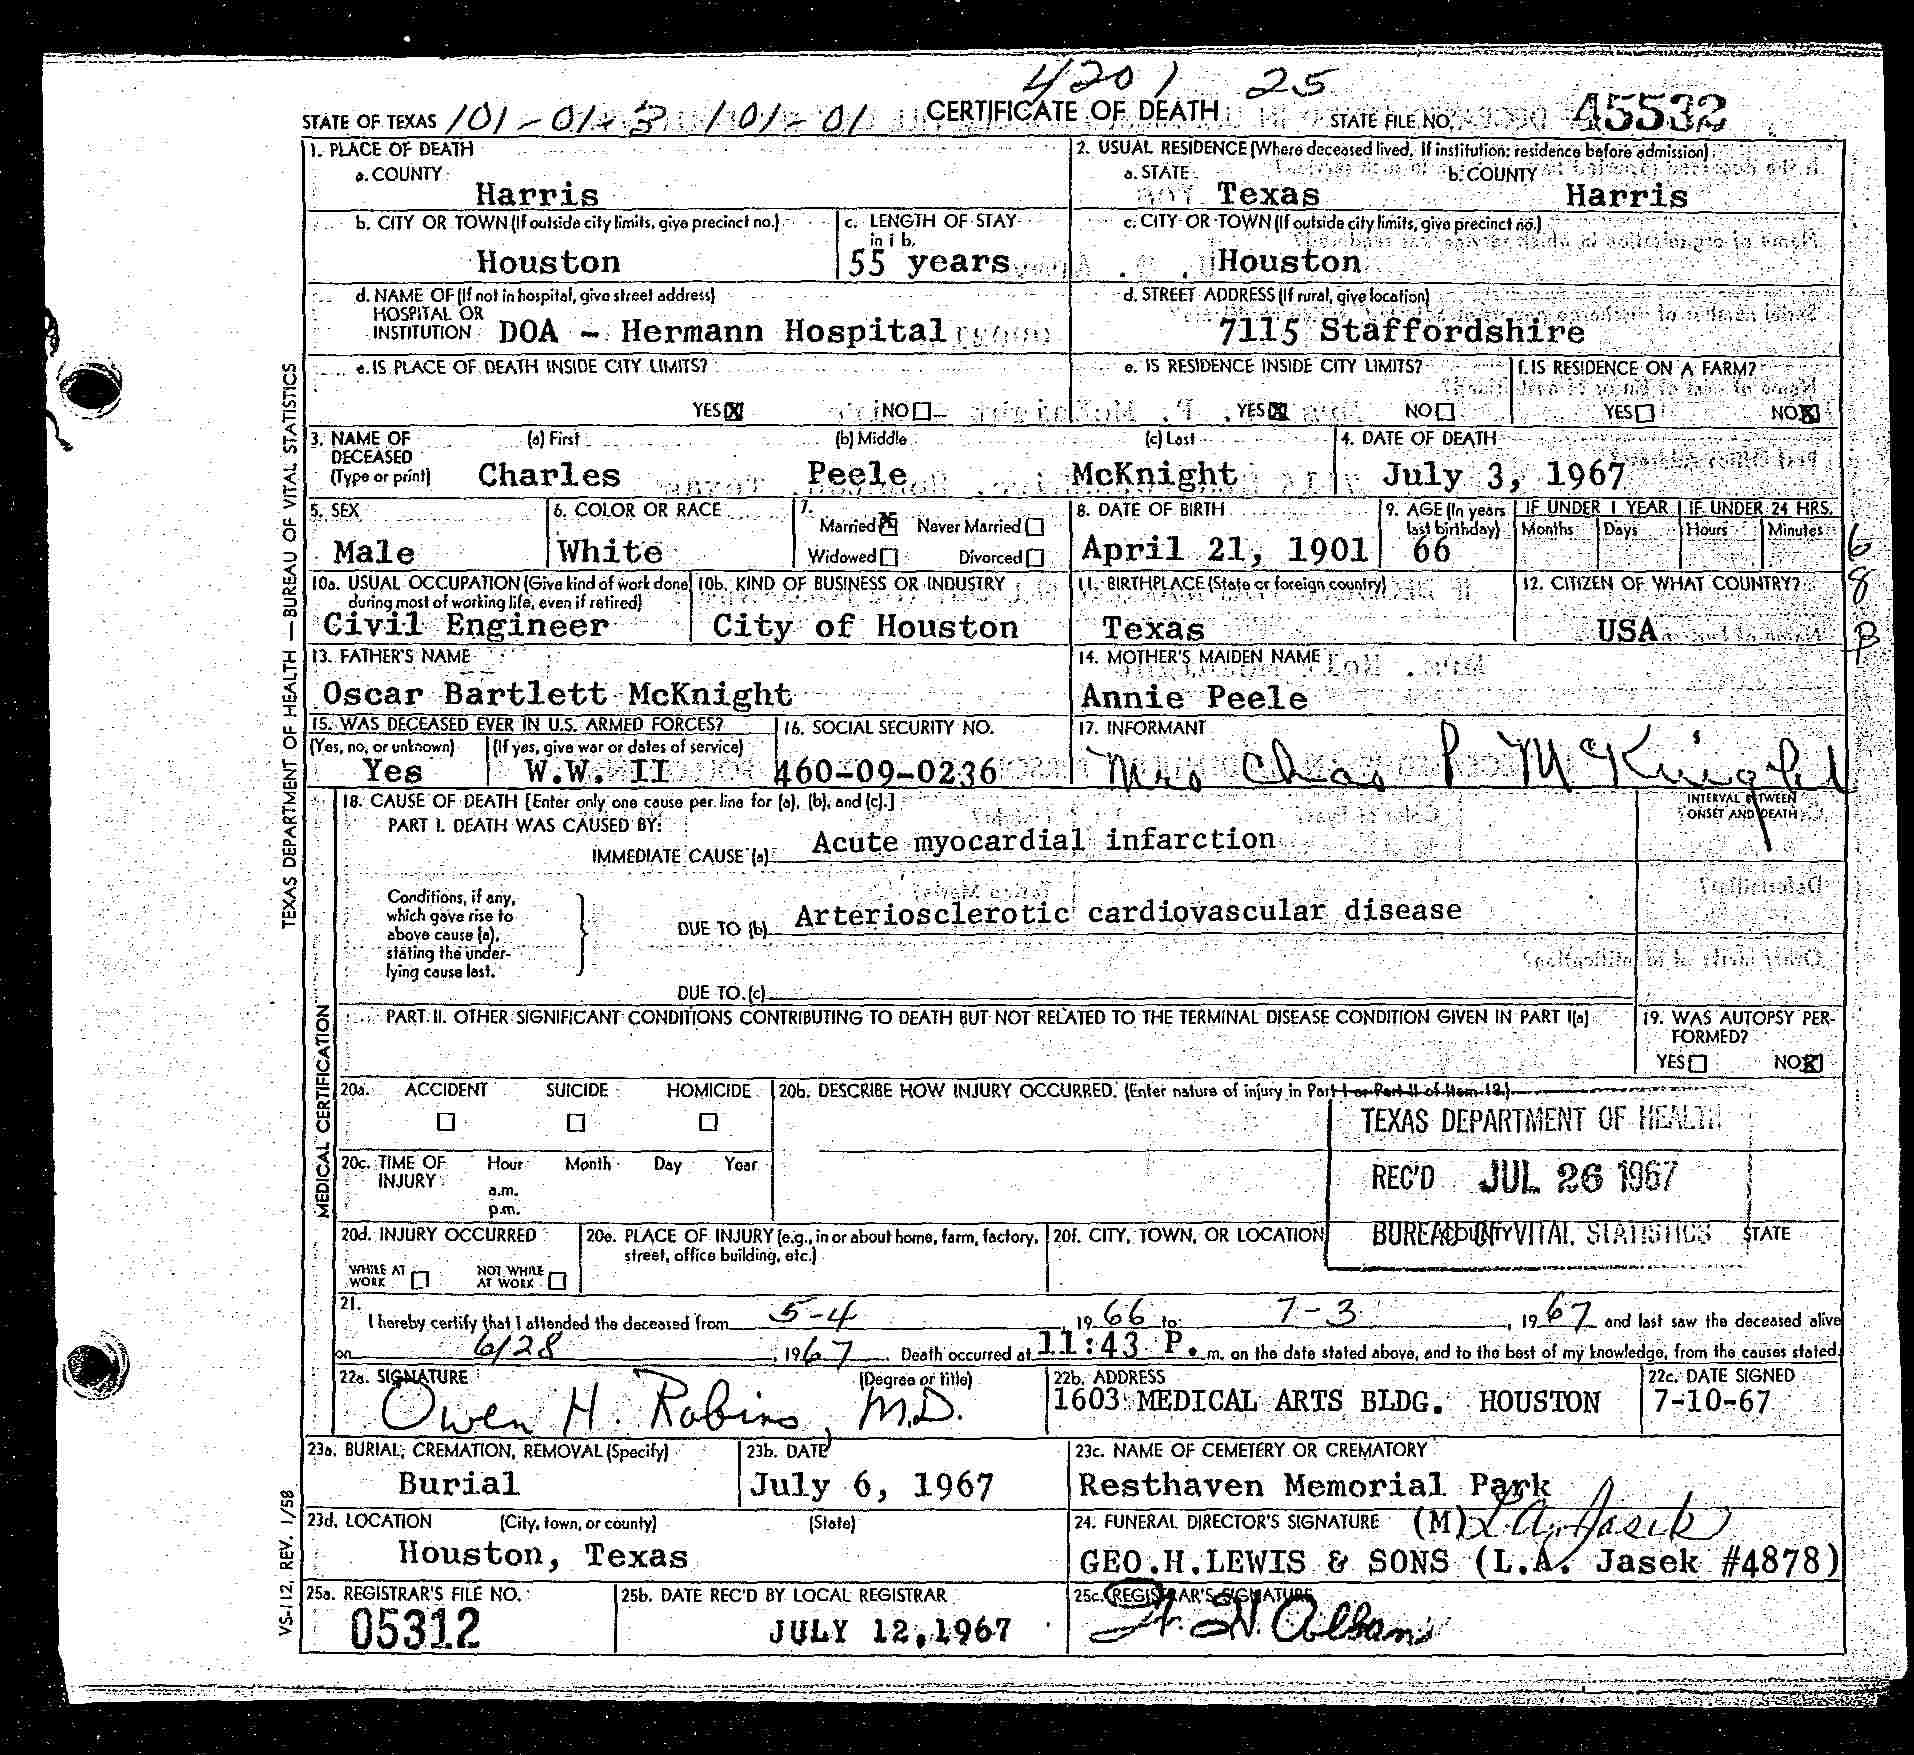 4201 25
STATE OF TEXAS 101-01-3 101-01 CERTIFICATE OF DEATH STATE FILE NO. 45532
1. PLACE OF DEATH
a. COUNTY
Harris
2. USUAL RESIDENCE (Where deceased lived. If institution: residence before admission)
a. STATE b. COUNTY
Texas Harris
b. CITY OR TOWN (If outside city limits, give precinct no.)
Houston
c. LENGTH OF STAY
in 1 b.
55 years
c. CITY OR TOWN (If outside city limits, give precinct no.)
Houston
d. NAME OF (If not in hospital, give street address)
HOSPITAL OR
INSTITUTION DOA - Hermann Hospital
d. STREET ADDRESS (If rural, give location)
7115 Staffordshire
e. IS PLACE OF DEATH INSIDE CITY LIMITS?
YES X NO
e. IS RESIDENCE INSIDE CITY LIMITS?
YES X NO
f. IS RESIDENCE ON A FARM?
YES NO X
3. NAME OF DECEASED (Type or print) (a) First (b) Middle (c) Last
Charles Peele McKnight
4. DATE OF DEATH
July 3, 1967
5. SEX
Male
6. COLOR OR RACE
White
7.
Married X Never Married
Widowed Divorced
8. DATE OF BIRTH
April 21, 1901
9. AGE (In years last birthday)
66
IF UNDER 1 YEAR IF UNDER 24 HRS.
Months Days Hours Minutes
10a. USUAL OCCUPATION (Give kind of work done during most of working life, even if retired)
Civil Engineer
10b. KIND OF BUSINESS OR INDUSTRY
City of Houston
11. BIRTHPLACE (State or foreign country)
Texas
12. CITIZEN OF WHAT COUNTRY?
USA
68B
13. FATHER'S NAME
Oscar Bartlett McKnight
14. MOTHER'S MAIDEN NAME
Annie Peele
15. WAS DECEASED EVER IN U.S. ARMED FORCES?
(Yes, no, or unknown) (If yes, give war or dates of service)
Yes W.W. II
16. SOCIAL SECURITY NO.
460-09-0236
17. INFORMANT
Mrs Chas P McKnight
18. CAUSE OF DEATH [Enter only one cause per line for (a), (b), and (c).]
INTERVAL BETWEEN
ONSET AND DEATH
PART I. DEATH WAS CAUSED BY:
IMMEDIATE CAUSE (a) Acute myocardial infarction
Conditions, if any,
which gave rise to
above cause (a),
stating the under-
lying cause last.
DUE TO (b) Arteriosclerotic cardiovascular disease
DUE TO (c)
PART II. OTHER SIGNIFICANT CONDITIONS CONTRIBUTING TO DEATH BUT NOT RELATED TO THE TERMINAL DISEASE CONDITION GIVEN IN PART I(a)
19. WAS AUTOPSY PER-
FORMED?
YES NO X
20a. ACCIDENT SUICIDE HOMICIDE
20b. DESCRIBE HOW INJURY OCCURRED. (Enter nature of injury in Part I or Part II of Item 18.)
TEXAS DEPARTMENT OF HEALTH
REC'D JUL 26 1967
BUREAU OF VITAL STATISTICS
20c. TIME OF INJURY Hour Month Day Year
a.m.
p.m.
20d. INJURY OCCURRED
WHILE AT WORK NOT WHILE AT WORK
20e. PLACE OF INJURY (e.g., in or about home, farm, factory,
street, office building, etc.)
20f. CITY, TOWN, OR LOCATION COUNTY STATE
21.
I hereby certify that I attended the deceased from 5-4, 1966 to 7-3, 1967 and last saw the deceased alive
on 6/28, 1967. Death occurred at 11:43 P. m. on the date stated above, and to the best of my knowledge, from the causes stated.
22a. SIGNATURE (Degree or title)
Owen H. Robins, M.D.
22b. ADDRESS
1603 MEDICAL ARTS BLDG. HOUSTON
22c. DATE SIGNED
7-10-67
23a. BURIAL, CREMATION, REMOVAL (Specify)
Burial
23b. DATE
July 6, 1967
23c. NAME OF CEMETERY OR CREMATORY
Resthaven Memorial Park
23d. LOCATION (City, town, or county) (State)
Houston, Texas
24. FUNERAL DIRECTOR'S SIGNATURE (M) L.A. Jasek
GEO.H.LEWIS & SONS (L.A. Jasek #4878)
25a. REGISTRAR'S FILE NO.
05312
25b. DATE REC'D BY LOCAL REGISTRAR
JULY 12, 1967
25c. REGISTRAR'S SIGNATURE
TEXAS DEPARTMENT OF HEALTH — BUREAU OF VITAL STATISTICS
MEDICAL CERTIFICATION
VS-112, REV. 1/58